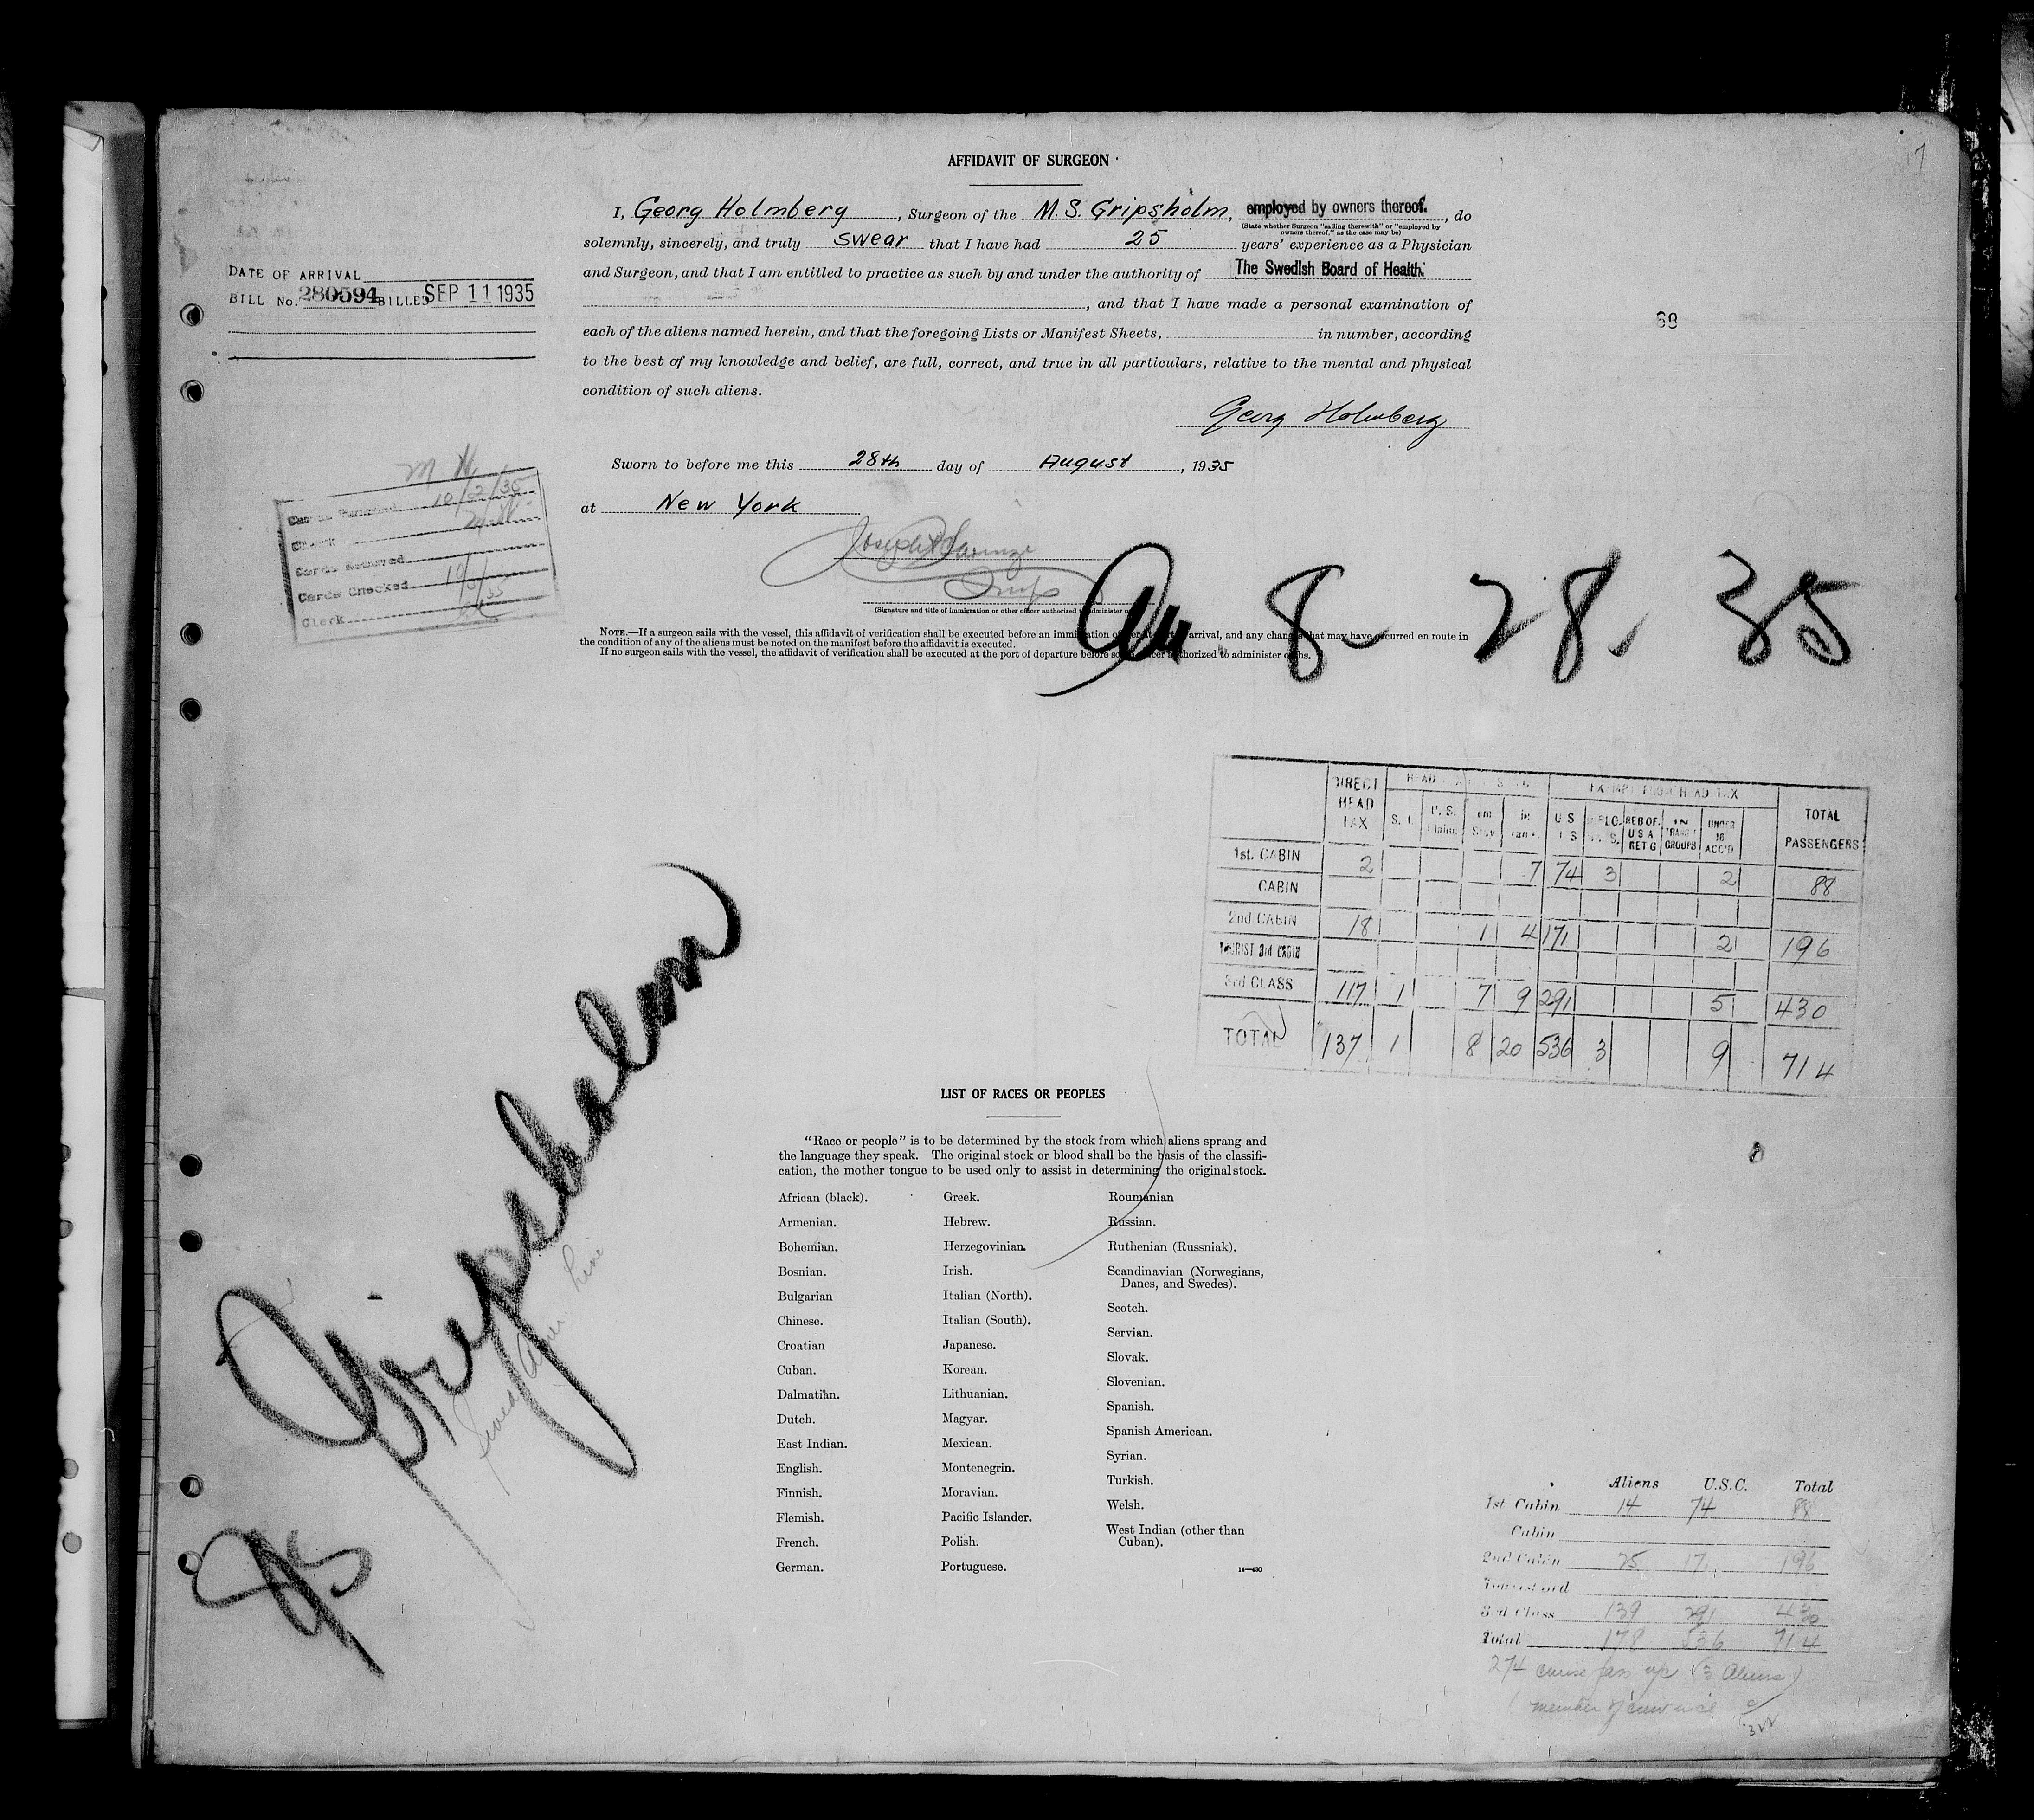 17
AFFIDAVIT OF SURGEON
I, Georg Holmberg, Surgeon of the M.S. Gripsholm, employed by owners thereof., do
(State whether Surgeon "sailing therewith" or "employed by
owners thereof," as the case may be)
solemnly, sincerely, and truly swear that I have had 25 years' experience as a Physician
and Surgeon, and that I am entitled to practice as such by and under the authority of The Swedish Board of Health.
, and that I have made a personal examination of
each of the aliens named herein, and that the foregoing Lists or Manifest Sheets, in number, according
to the best of my knowledge and belief, are full, correct, and true in all particulars, relative to the mental and physical
condition of such aliens.
Georg Holmberg
Sworn to before me this 28th day of August, 1935
at New York
Insp
(Signature and title of immigration or other officer authorized to administer
NOTE.—If a surgeon sails with the vessel, this affidavit of verification shall be executed before an immigration officer at port of arrival, and any changes that may have occurred en route in
the condition of any of the aliens must be noted on the manifest before the affidavit is executed.
If no surgeon sails with the vessel, the affidavit of verification shall be executed at the port of departure before some officer authorized to administer oaths.
DATE OF ARRIVAL
BILL No. 280594 BILLED SEP 11 1935
69
10/2/35
Clerk
Cards Removed
Cards Checked
Clerk
8. 28. 35
DIRECT HEAD TAX
EXEMPT FROM HEAD TAX
TOTAL PASSENGERS
1st. CABIN 2 7 74 3 2 88
CABIN
2nd CABIN 18 1 4 171 2 196
TOURIST 3rd CABIN
3rd CLASS 117 1 7 9 291 5 430
TOTAL 137 1 8 20 536 3 9 714
Gripsholm
Swed Amer Line
LIST OF RACES OR PEOPLES
"Race or people" is to be determined by the stock from which aliens sprang and
the language they speak. The original stock or blood shall be the basis of the classifi-
cation, the mother tongue to be used only to assist in determining the original stock.
African (black).
Armenian.
Bohemian.
Bosnian.
Bulgarian
Chinese.
Croatian
Cuban.
Dalmatian.
Dutch.
East Indian.
English.
Finnish.
Flemish.
French.
German.
Greek.
Hebrew.
Herzegovinian.
Irish.
Italian (North).
Italian (South).
Japanese.
Korean.
Lithuanian.
Magyar.
Mexican.
Montenegrin.
Moravian.
Pacific Islander.
Polish.
Portuguese.
Roumanian
Russian.
Ruthenian (Russniak).
Scandinavian (Norwegians,
Danes, and Swedes).
Scotch.
Servian.
Slovak.
Slovenian.
Spanish.
Spanish American.
Syrian.
Turkish.
Welsh.
West Indian (other than
Cuban).
14—430
Aliens U.S.C. Total
1st Cabin 14 74 88
Cabin
2nd Cabin 25 171 196
3rd Class 139 291 430
Total 178 536 714
274 cruise pass (3 Aliens)
member of crew